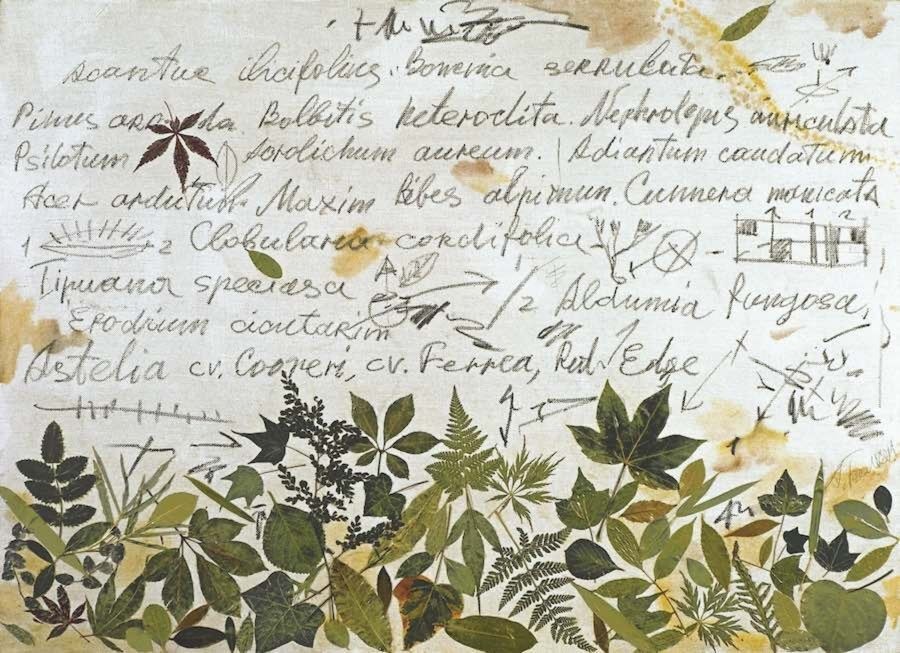 ilicifolius. Bomeria serrulata.
Pinus Bolbitis heteroclita. Nephrolepis auriculata
Psilotum aureum. Adiantum caudatum
Acer Maxim Ribes alpimun. Cunnera manicata
1 2 Globularia cordifolia 1 2
Tipuana speciasa 2 Aldumia Fungosa,
Erodium cicutarim
Astelia cv. Cooperi, cv. Ferrea, Red. Edge